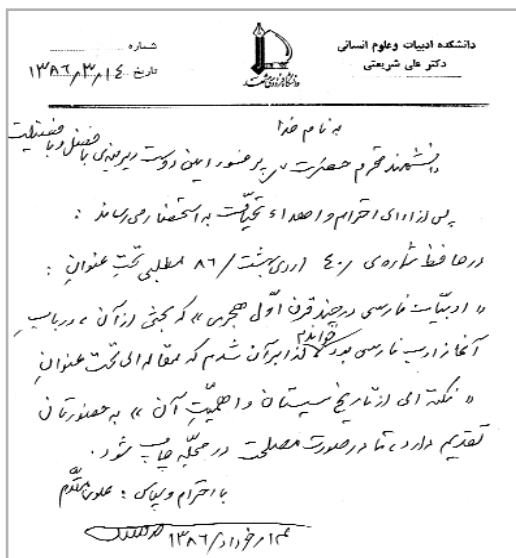 دانشکده ادبیات و علوم انسانی
دکتر علی شریعتی
شماره
تاریخ ۱۳۸۶/۳/۱۴
به نام خدا
دانشمند محترم حضرت پرفسور امین دوست دیرینه‌ی با فضل و با فضیلت
پس از ادای احترام و اهداء تحیّت به استحضار می‌رساند :
در حافظ شماره‌ی ۴۰/ اردیبهشت/ ۸۶ مطلبی تحتِ عنوانِ :
« ادبیّات فارسی در چند قرن اوّل هجری » که بحثی از آن ، در بابِ
آغاز ادب فارسی بود خواندم لذا بر آن شدم که مقاله‌ای تحت عنوانِ
« نکته‌ای از تاریخ سیستان و اهمیّتِ آن » به حضورتان
تقدیم دارد، تا در صورت مصلحت در مجلّه چاپ شود .
با احترام و سپاس : علوی مقدّم
۱۴/خرداد/۱۳۸۶